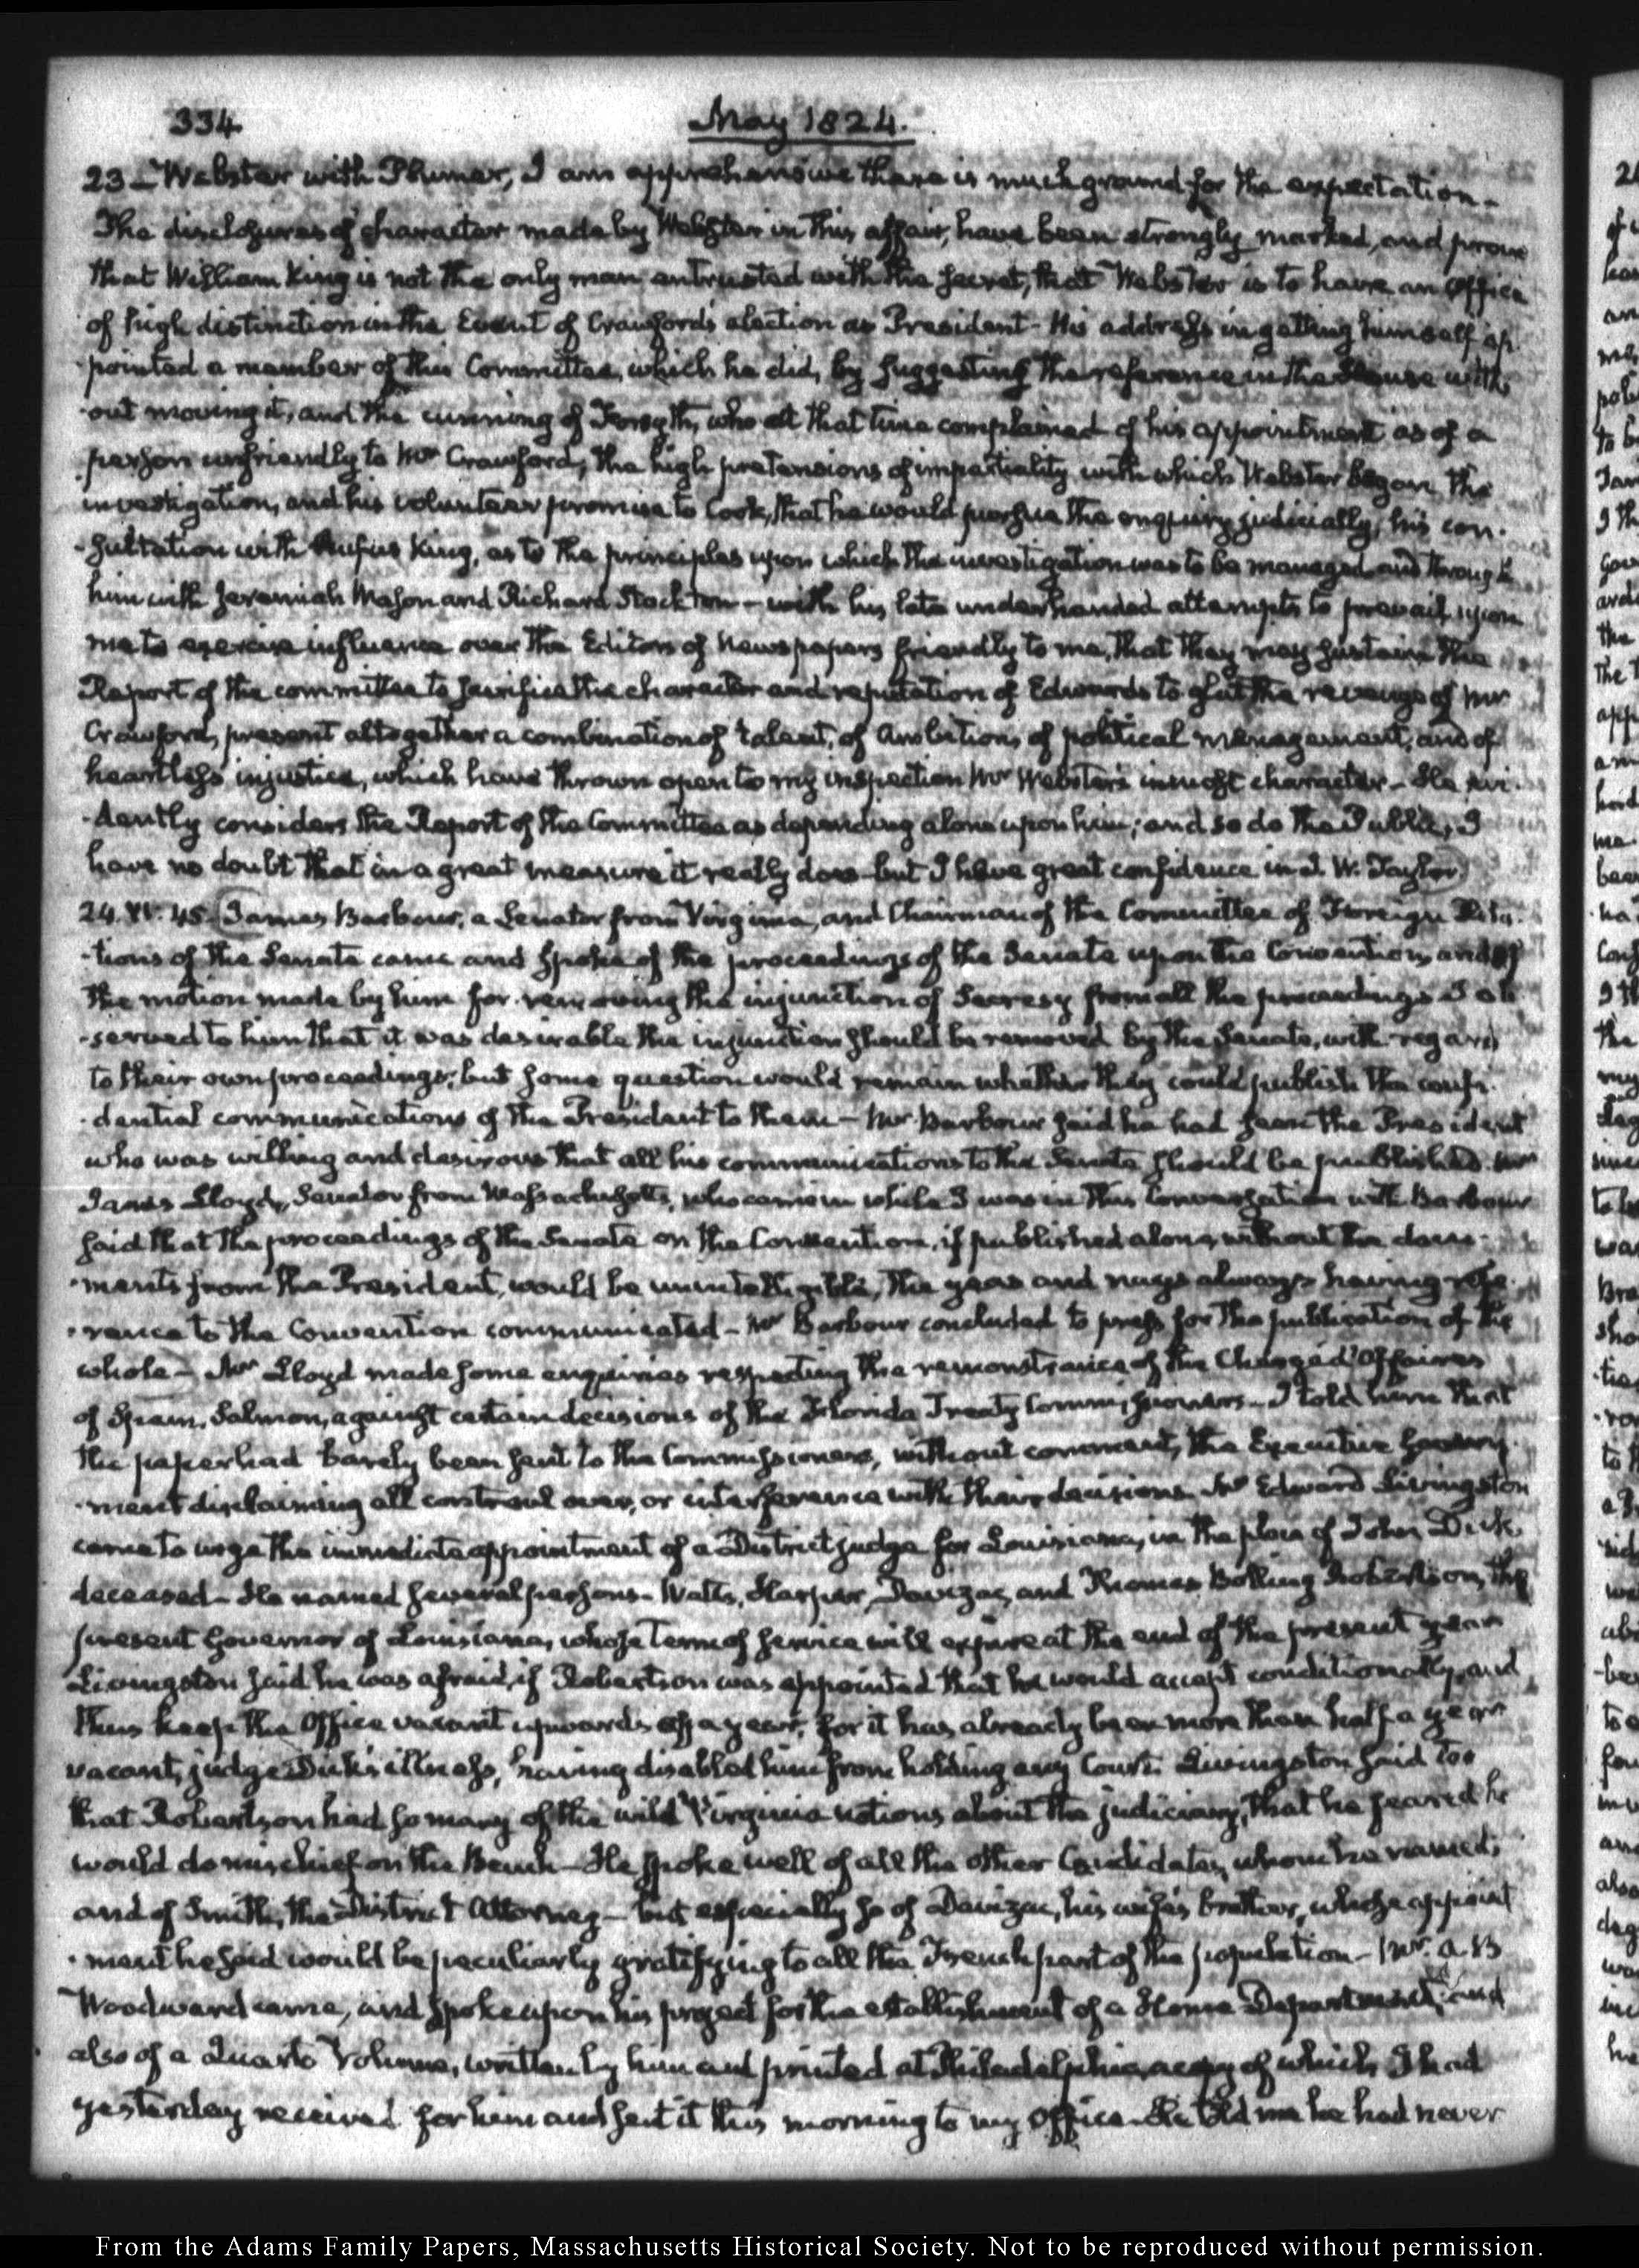 334
May 1824.
23 - Webster with Plumer, I am apprehensive there is much ground for the expectation -
The disclosures of character made by Webster in this affair, have been strongly marked, and prove
that William King is not the only man entrusted with the secret, that Webster is to have an Office
of high distinction in the Event of Crawford's election as President - His address in getting himself ap-
-pointed a member of this Committee, which he did, by suggesting the reference in the House with-
-out moving it, and the cunning of Forsyth, who at that time complained of his appointment as of a
person unfriendly to Mr Crawford, the high pretensions of impartiality with which Webster began the
investigation, and his volunteer promise to Cook, that he would pursue the enquiry judicially, his con-
-sultation with Rufus King, as to the principles upon which the investigation was to be managed and through
him with Jeremiah Mason and Richard Stockton - with his late underhanded attempts to prevail upon
me to exercise influence over the Editors of Newspapers friendly to me, that they may sustain the
Report of the committee to sacrifice the character and reputation of Edwards to glut the revenge of Mr
Crawford, present altogether a combination of talent, of Ambition, of political management, and of
heartless injustice, which have thrown open to my inspection Mr Webster's inmost character - He evi-
-dently considers the Report of the Committee as depending alone upon him; and so do the Public, I
have no doubt that in a great measure it really does - but I have great confidence in J. W. Taylor
24. IV. 45. James Barbour, a Senator from Virginia, and Chairman of the Committee of Foreign Rela-
-tions of the Senate came and spoke of the proceedings of the Senate upon the Convention, and of
the motion made by him for removing the injunction of Secresy from all the proceedings I ob-
-served to him that it was desirable the injunction should be removed by the Senate, with regard
to their own proceedings; but some question would remain whether they could publish the confi-
-dential communications of the President to them - Mr Barbour said he had seen the President
who was willing and desirous that all his communications to the Senate should be published. Mr
James Lloyd, Senator from Massachusetts, who came in while I was in this Conversation with Barbour
said that the proceedings of the Senate on the Convention, if published alone, without the docu-
-ments from the President, would be unintelligible, the yeas and nays always having refe-
-rence to the Convention communicated - Mr Barbour concluded to press for the publication of the
whole - Mr Lloyd made some enquiries respecting the remonstrance of the Chargé d'Affaires
of Spain, Salmon, against certain decisions of the Florida Treaty Commissioners - I told him that
the paper had barely been sent to the Commissioners, without comment, the Executive Govern-
-ment disclaiming all controul over, or interference with their decisions. Mr Edward Livingston
came to urge the immediate appointment of a District judge for Louisiana, in the place of John Dick,
deceased - He named several persons - Watts, Harper, Davezac, and Thomas Bolling Robertson, the
present Governor of Louisiana, whose term of service will expire at the end of the present year
Livingston said he was afraid, if Robertson was appointed that he would accept conditionally, and
thus keep the Office vacant upwards of a year, for it has already been more than half a year
vacant, judge Dick's illness, having disabled him from holding any Court. Livingston said too
that Robertson had so many of the wild Virginia notions about the judiciary, that he feared he
would do mischief on the Bench - He spoke well of all the other Candidates, whom he named;
and of Smith, the District Attorney - but especially so of Davezac, his wife's brother, whose appoint-
-ment he said would be peculiarly gratifying to all the French part of the population - Mr A. B
Woodward came, and spoke upon his project for the establishment of a Home Department; and
also of a Quarto Volume, written by him and printed at Philadelphia, a copy of which I had
yesterday received for him and sent it this morning to my Office - He told me he had never
From the Adams Family Papers, Massachusetts Historical Society. Not to be reproduced without permission.